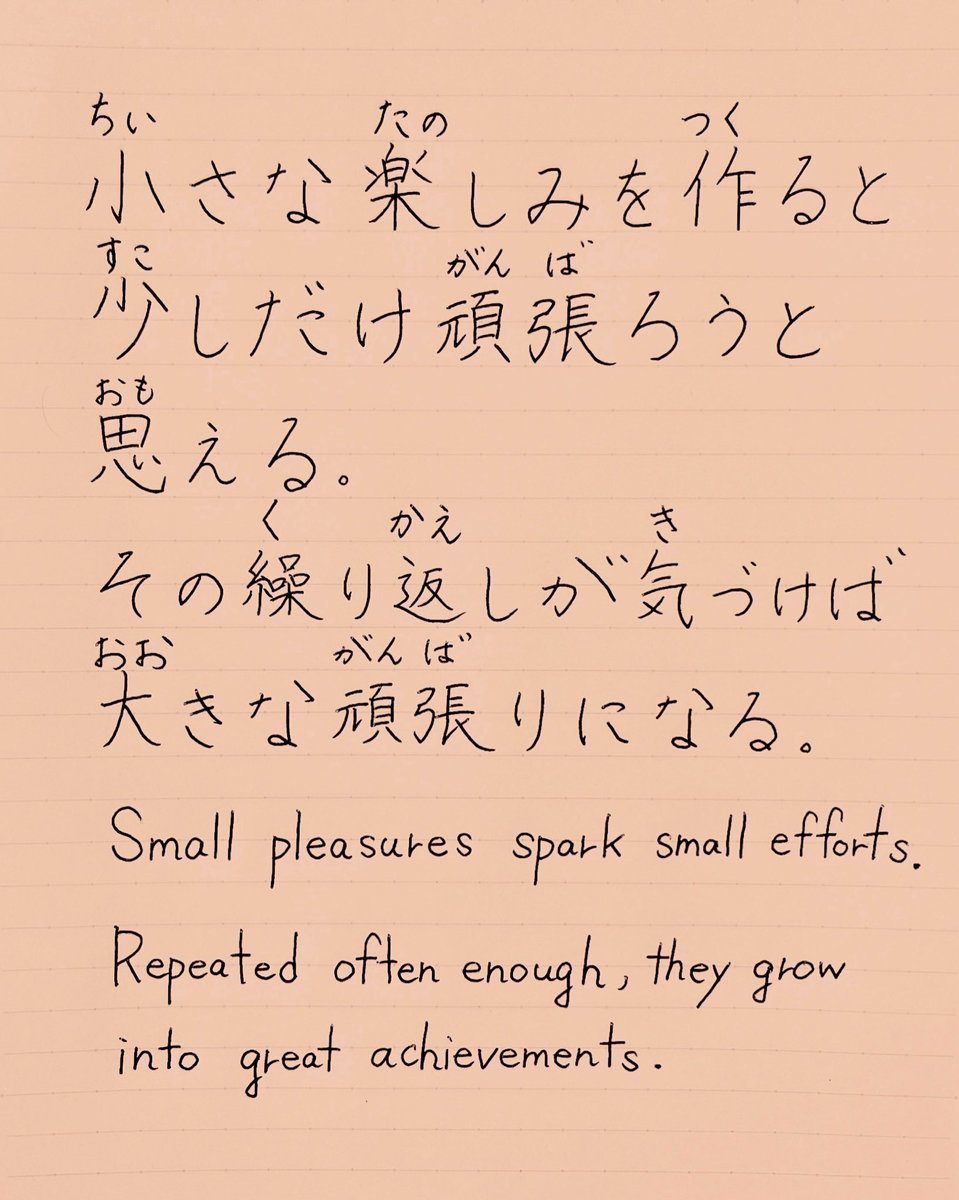 ちい たの つく
小さな楽しみを作ると
すこ がん ば
少しだけ頑張ろうと
おも
思える。
く かえ き
その繰り返しが気づけば
おお がん ば
大きな頑張りになる。
Small pleasures spark small efforts.
Repeated often enough, they grow
into great achievements.